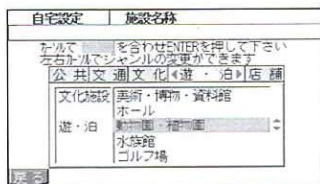 自宅設定 施設名称
カーソルで を合わせENTERを押して下さい
左右カーソルでジャンルの変更ができます
公共 交通 文化 ◀遊・泊▶ 店舗
文化施設 美術・博物・資料館
ホール
遊・泊 動物園・植物園
水族館
ゴルフ場
戻る